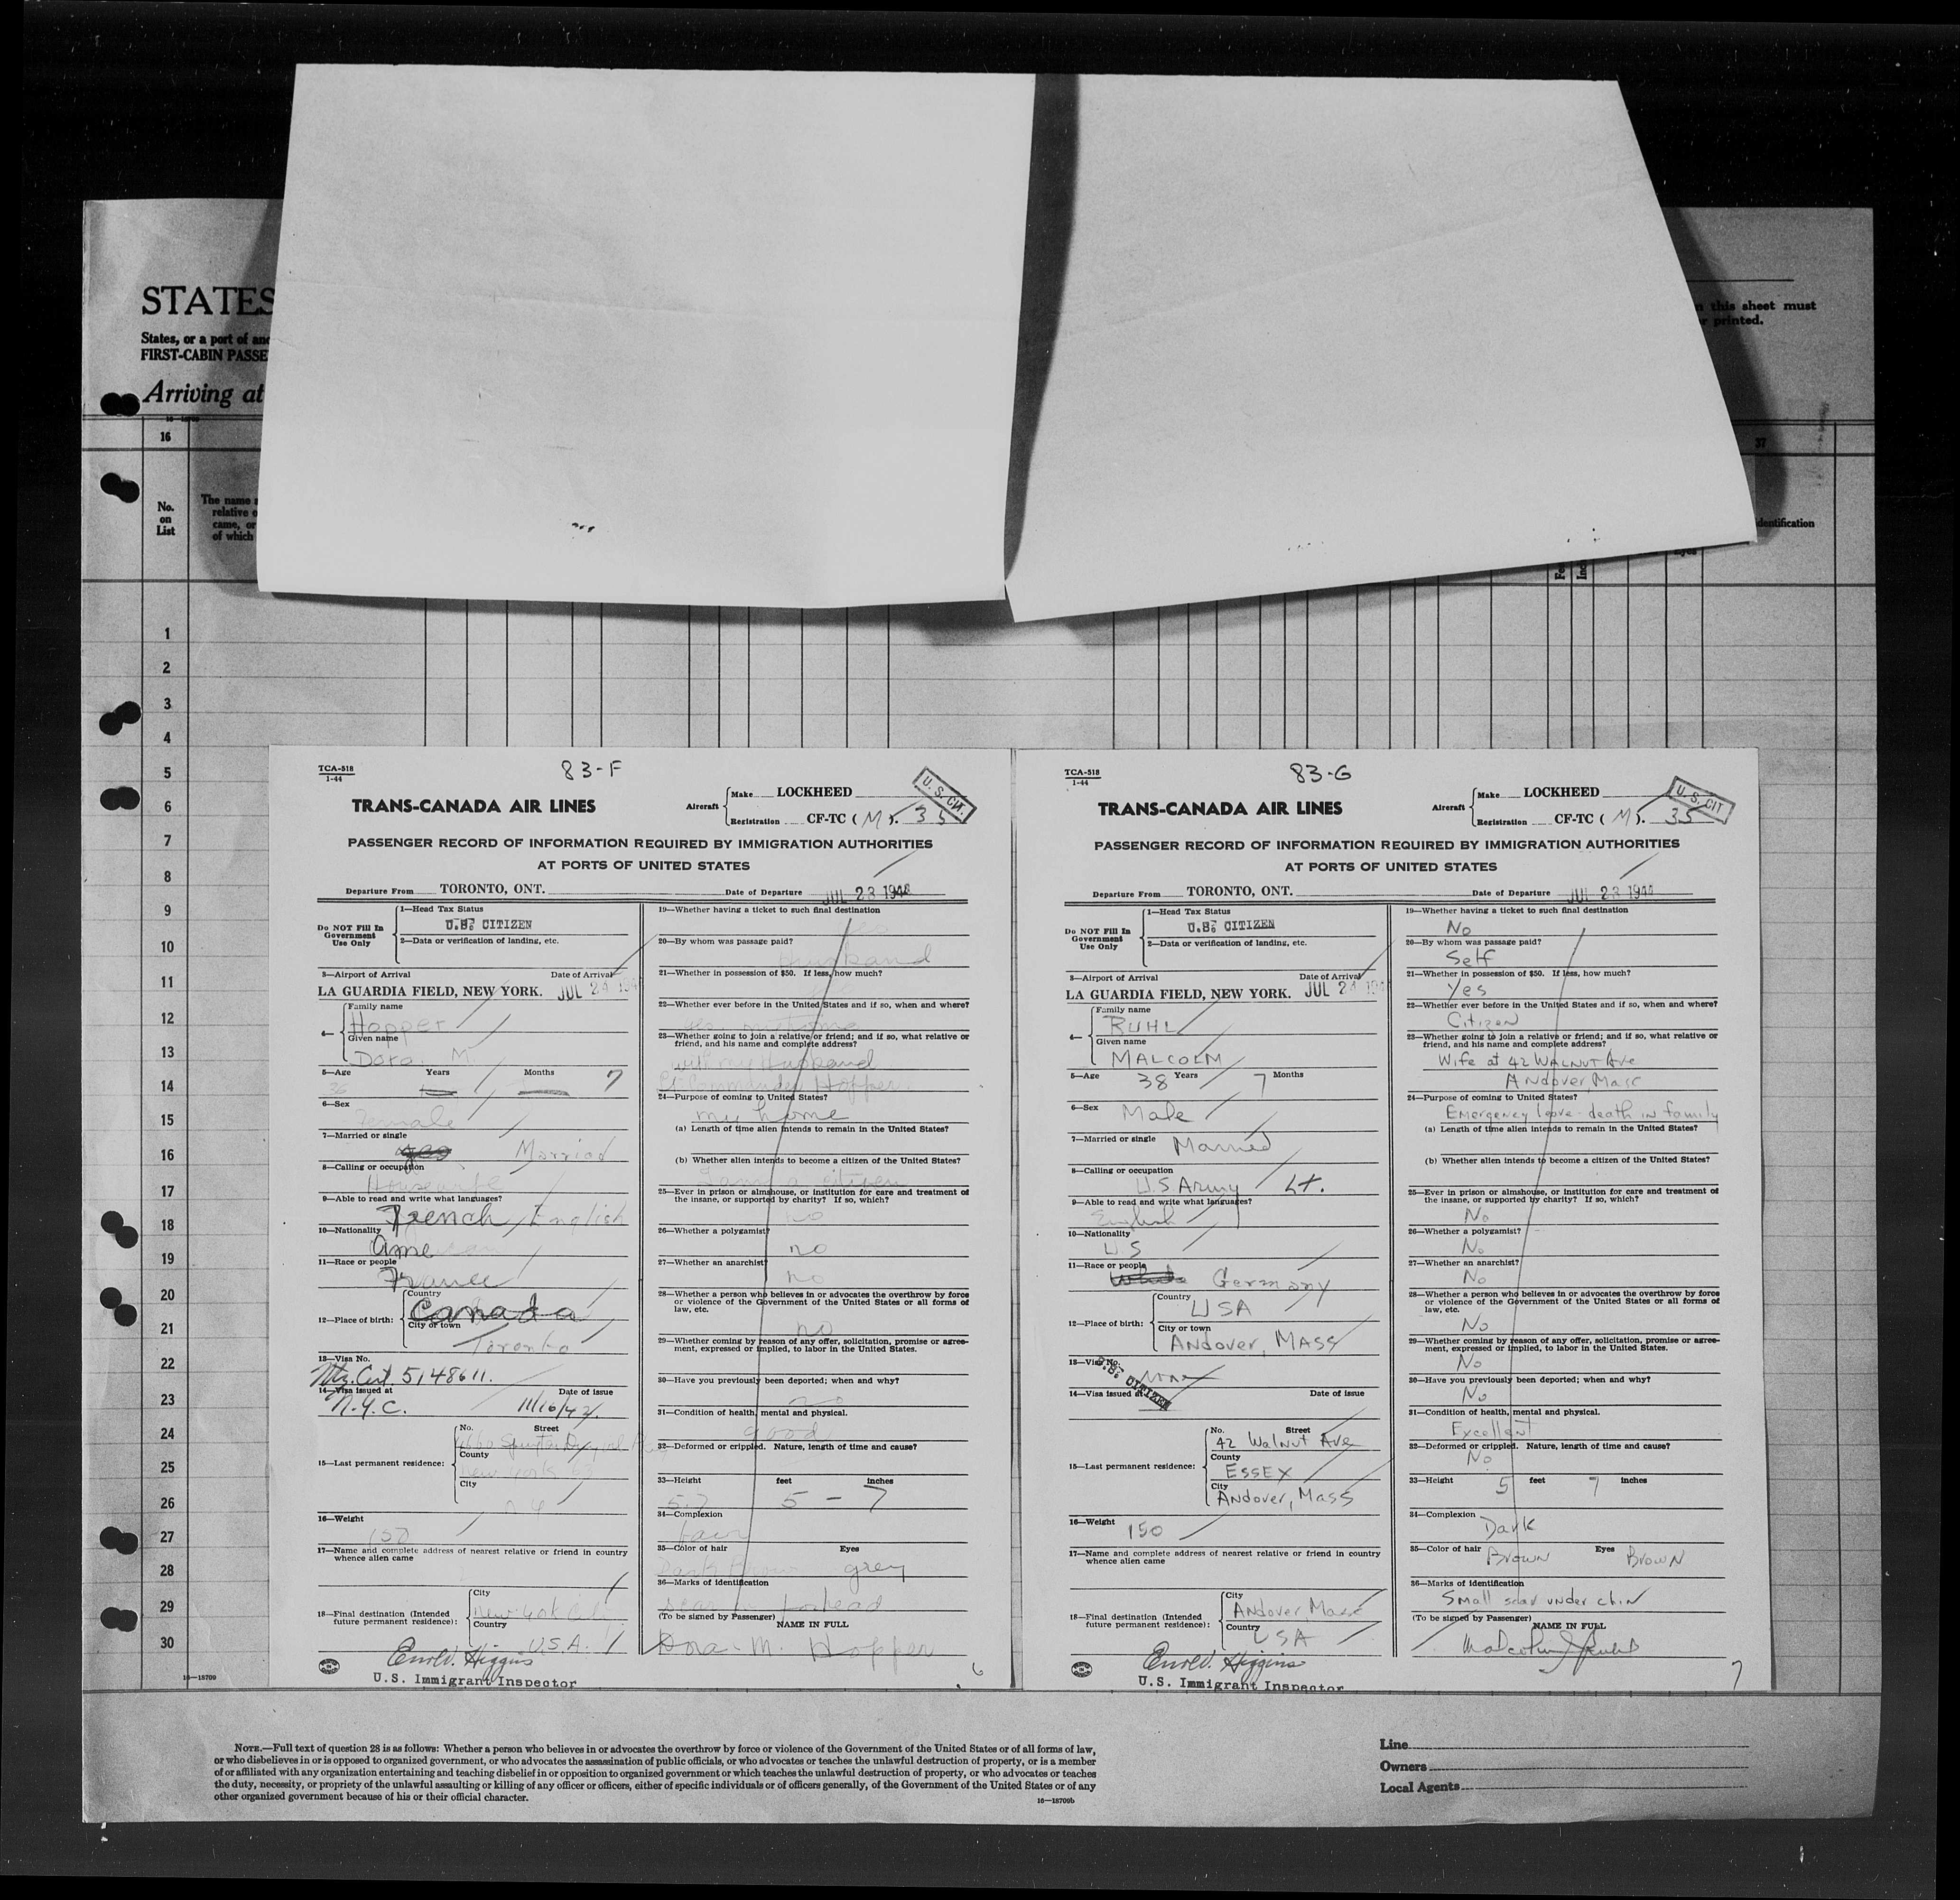 STATES
States, or a port of
FIRST-CABIN PASSE
Arriving at
this sheet must
printed.
16
37
No.
on
List
The name
relative
came, or
of which
identification
Eyes
1
2
3
4
5
6
7
8
9
10
11
12
13
14
15
16
17
18
19
20
21
22
23
24
25
26
27
28
29
30
16—18709
TCA-518
1-44
83-F
TRANS-CANADA AIR LINES
Aircraft
Make LOCKHEED
Registration CF-TC (M). 35
U. S. CIT.
PASSENGER RECORD OF INFORMATION REQUIRED BY IMMIGRATION AUTHORITIES
AT PORTS OF UNITED STATES
Departure From TORONTO, ONT. Date of Departure JUL 23 1944
Do NOT Fill In
Government
Use Only
1—Head Tax Status
U.S. CITIZEN
2—Data or verification of landing, etc.
3—Airport of Arrival Date of Arrival
LA GUARDIA FIELD, NEW YORK. JUL 24 194
4—
Family name
Hopper
Given name
Dora M.
5—Age Years Months
36 7
6—Sex
Female
7—Married or single
Married
8—Calling or occupation
Housewife
9—Able to read and write what languages?
French English
10—Nationality
American
11—Race or people
France
12—Place of birth:
Country
Canada
City or town
Toronto
13—Visa No.
Ntz. Cert. 5148611.
14—Visa issued at Date of issue
N.Y.C. 11/16/42.
15—Last permanent residence:
No. Street
County
New York
City
N Y
16—Weight
17—Name and complete address of nearest relative or friend in country
whence alien came
18—Final destination (Intended
future permanent residence):
City
New York City
Country
U.S.A.
Enrol V. Higgins
U.S. Immigrant Inspector
19—Whether having a ticket to such final destination
yes
20—By whom was passage paid?
Husband
21—Whether in possession of $50. If less, how much?
22—Whether ever before in the United States and if so, when and where?
23—Whether going to join a relative or friend; and if so, what relative or
friend, and his name and complete address?
with my Husband
Lt Commander Hopper
24—Purpose of coming to United States?
my home
(a) Length of time alien intends to remain in the United States?
(b) Whether alien intends to become a citizen of the United States?
I am a citizen
25—Ever in prison or almshouse, or institution for care and treatment of
the insane, or supported by charity? If so, which?
no
26—Whether a polygamist?
no
27—Whether an anarchist?
no
28—Whether a person who believes in or advocates the overthrow by force
or violence of the Government of the United States or all forms of
law, etc.
no
29—Whether coming by reason of any offer, solicitation, promise or agree-
ment, expressed or implied, to labor in the United States.
30—Have you previously been deported; when and why?
no
31—Condition of health, mental and physical.
good
32—Deformed or crippled. Nature, length of time and cause?
33—Height feet inches
5.7 5 - 7
34—Complexion
fair
35—Color of hair Eyes
Dark brown grey
36—Marks of identification
scar on forhead
(To be signed by Passenger) NAME IN FULL
Dora M. Hopper
6
TCA-518
1-44
83-G
TRANS-CANADA AIR LINES
Aircraft
Make LOCKHEED
Registration CF-TC (M). 35
U. S. CIT
PASSENGER RECORD OF INFORMATION REQUIRED BY IMMIGRATION AUTHORITIES
AT PORTS OF UNITED STATES
Departure From TORONTO, ONT. Date of Departure JUL 23 1944
Do NOT Fill In
Government
Use Only
1—Head Tax Status
U.S. CITIZEN
2—Data or verification of landing, etc.
3—Airport of Arrival Date of Arrival
LA GUARDIA FIELD, NEW YORK. JUL 24 194
4—
Family name
RUHL
Given name
MALCOLM
5—Age 38 Years 7 Months
6—Sex
Male
7—Married or single
Married
8—Calling or occupation
U.S Army Lt.
9—Able to read and write what languages?
English
10—Nationality
U S
11—Race or people
White Germany
12—Place of birth:
Country
USA
City or town
Andover, MASS
13—Visa No.
None
U.S. CITIZEN
14—Visa issued at Date of issue
15—Last permanent residence:
No. Street
42 Walnut Ave
County
ESSEX
City
Andover, Mass
16—Weight
150
17—Name and complete address of nearest relative or friend in country
whence alien came
18—Final destination (Intended
future permanent residence):
City
Andover, Mass
Country
USA
Enrol V. Higgins
U.S. Immigrant Inspector
19—Whether having a ticket to such final destination
No
20—By whom was passage paid?
Self
21—Whether in possession of $50. If less, how much?
Yes
22—Whether ever before in the United States and if so, when and where?
Citizen
23—Whether going to join a relative or friend; and if so, what relative or
friend, and his name and complete address?
Wife at 42 WALNUT Ave
Andover, Mass
24—Purpose of coming to United States?
Emergency leave - death in family
(a) Length of time alien intends to remain in the United States?
(b) Whether alien intends to become a citizen of the United States?
25—Ever in prison or almshouse, or institution for care and treatment of
the insane, or supported by charity? If so, which?
No
26—Whether a polygamist?
No
27—Whether an anarchist?
No
28—Whether a person who believes in or advocates the overthrow by force
or violence of the Government of the United States or all forms of
law, etc.
No
29—Whether coming by reason of any offer, solicitation, promise or agree-
ment, expressed or implied, to labor in the United States.
No
30—Have you previously been deported; when and why?
No
31—Condition of health, mental and physical.
Excellent
32—Deformed or crippled. Nature, length of time and cause?
No
33—Height 5 feet 7 inches
34—Complexion
Dark
35—Color of hair Brown Eyes Brown
36—Marks of identification
Small scar under chin
(To be signed by Passenger) NAME IN FULL
Malcolm J Ruhl
7
NOTE.—Full text of question 28 is as follows: Whether a person who believes in or advocates the overthrow by force or violence of the Government of the United States or of all forms of law,
or who disbelieves in or is opposed to organized government, or who advocates the assassination of public officials, or who advocates or teaches the unlawful destruction of property, or is a member
of or affiliated with any organization entertaining and teaching disbelief in or opposition to organized government or which teaches the unlawful destruction of property, or who advocates or teaches
the duty, necessity, or propriety of the unlawful assaulting or killing of any officer or officers, either of specific individuals or of officers generally, of the Government of the United States or of any
other organized government because of his or their official character.
16—18709b
Line
Owners
Local Agents